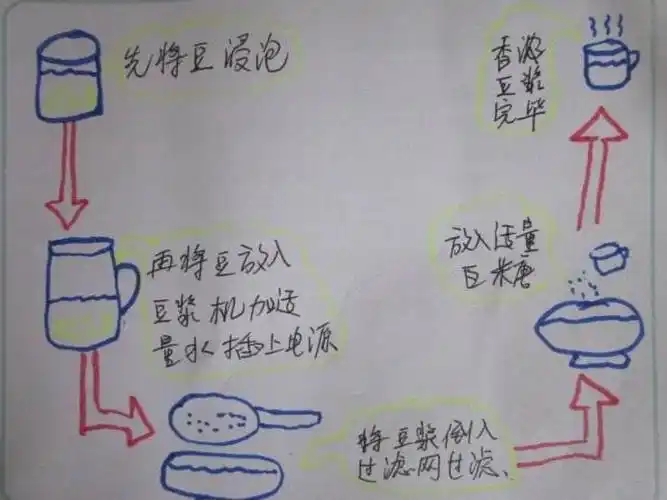 先将豆浸泡
再将豆放入
豆浆机加适
量水插上电源
将豆浆倒入
过滤网过滤、
放入适量
白米糖
香浓
豆浆
完毕